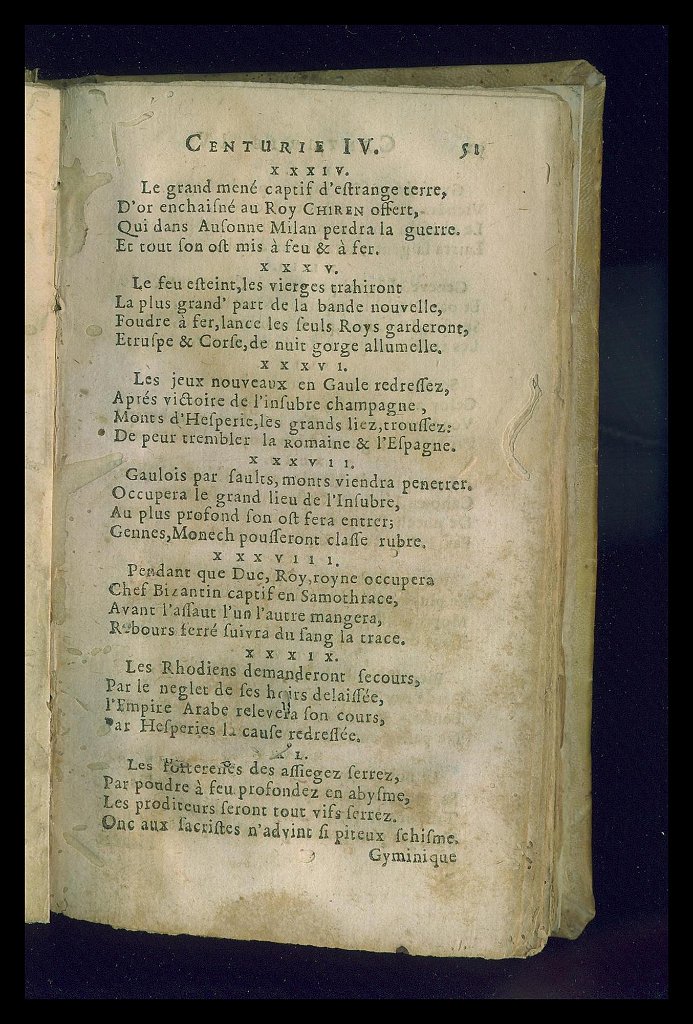 CENTURIE IV. 51
XXXIV.
Le grand mené captif d'eſtrange terre,
D'or enchaiſné au Roy CHIREN offert,
Qui dans Auſonne Milan perdra la guerre.
Et tout ſon oſt mis à feu & à fer.
XXXV.
Le feu eſteint, les vierges trahiront
La plus grand' part de la bande nouvelle,
Foudre à fer, lance les ſeuls Roys garderont,
Etruſpe & Corſe, de nuit gorge allumelle.
XXXVI.
Les jeux nouveaux en Gaule redreſſez,
Aprés victoire de l'inſubre champagne,
Monts d'Heſperie, les grands liez, trouſſez:
De peur trembler la Romaine & l'Eſpagne.
XXXVII.
Gaulois par ſaults, monts viendra penetrer.
Occupera le grand lieu de l'Inſubre,
Au plus profond ſon oſt fera entrer;
Gennes, Monech pouſſeront claſſe rubre.
XXXVIII.
Pendant que Duc, Roy, royne occupera
Chef Bizantin captif en Samothrace,
Avant l'aſſaut l'un l'autre mangera,
Rebours ferré ſuivra du ſang la trace.
XXXIX.
Les Rhodiens demanderont ſecours,
Par le neglet de ſes hoirs delaiſſée,
l'Empire Arabe relevera ſon cours,
Par Heſperies la cauſe redreſſée.
XL.
Les des aſſiegez ſerrez,
Par poudre à feu profondez en abyſme,
Les proditeurs ſeront tout vifs ſerrez.
Onc aux ſacriſtes n'advint ſi piteux ſchiſme.
Gyminique